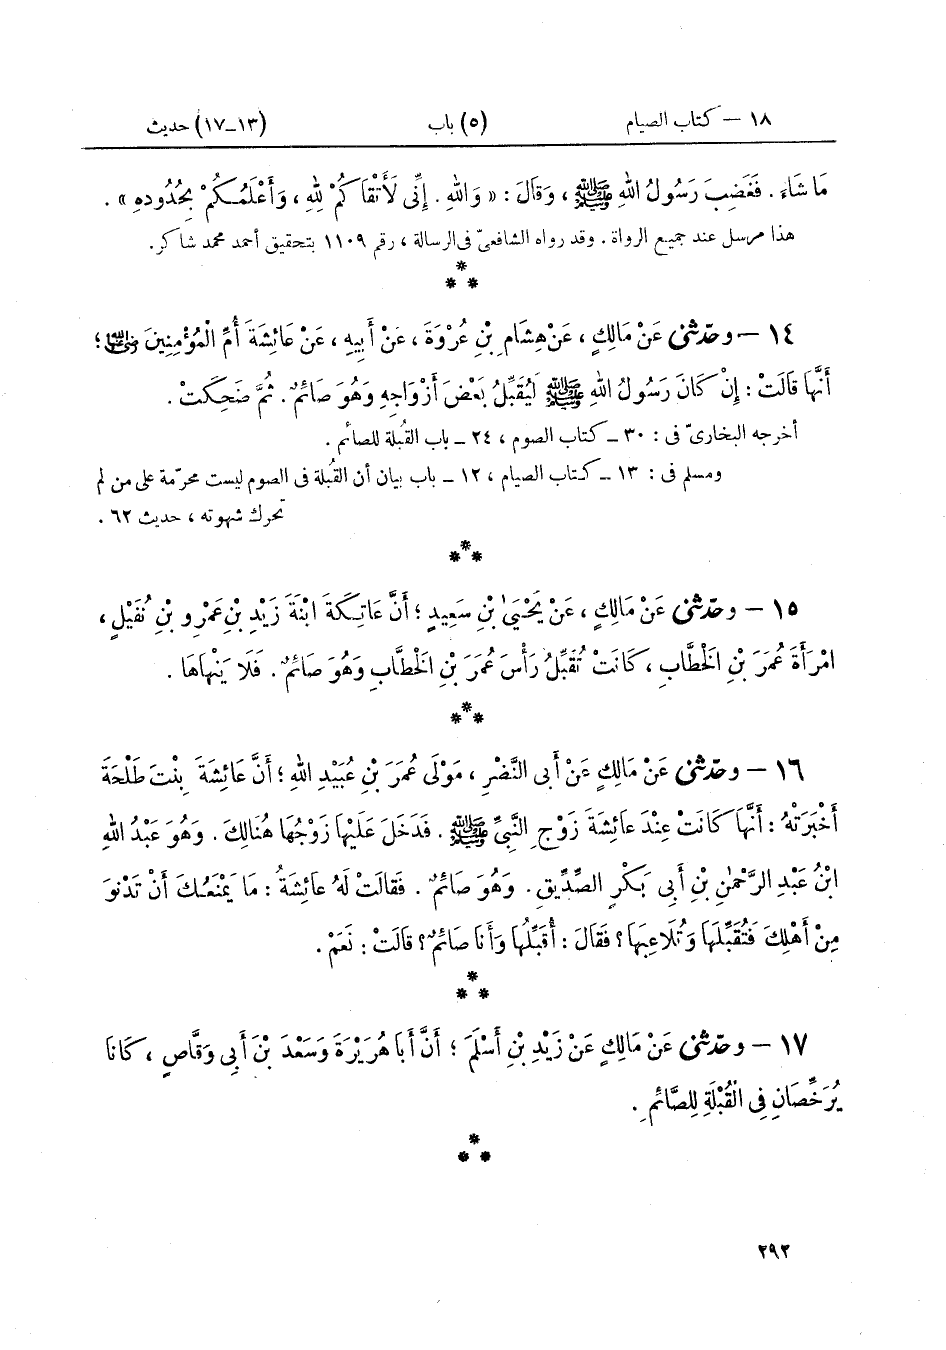 ١٨ – كتاب الصيام (٥) باب (١٣–١٧) حديث
مَا شَاءَ . فَغَضِبَ رَسُولُ اللهِ ﷺ ، وَقَالَ : « وَاللهِ . إِنِّى لَأَتْقَاكُمْ لِلهِ ، وَأَعْلَمُكُمْ بِحُدُودِهِ » .
هذا مرسل عند جميع الرواة . وقد رواه الشافعىّ فى الرسالة ، رقم ١١٠٩ بتحقيق أحمد محمد شاكر .
*
* *
١٤ – وحدّثنى عَنْ مَالِكٍ ، عَنْ هِشَامِ بْنِ عُرْوَةَ ، عَنْ أَبِيهِ ، عَنْ عَائِشَةَ أُمِّ الْمُؤْمِنِينَ رضي الله عنها ؛
أَنَّهَا قَالَتْ : إِنْ كَانَ رَسُولُ اللهِ ﷺ لَيُقَبِّلُ بَعْضَ أَزْوَاجِهِ وَهُوَ صَائِمٌ . ثُمَّ ضَحِكَتْ .
أخرجه البخارىّ فى : ٣٠ – كتاب الصوم ، ٢٤ – باب القُبلة للصائم .
ومسلم فى : ١٣ – كتاب الصيام ، ١٢ – باب بيان أن القُبلة فى الصوم ليست محرّمة على من لم
تحرك شهوته ، حديث ٦٢ .
*
* *
١٥ – وحدّثنى عَنْ مَالِكٍ ، عَنْ يَحْيَىٰ بْنِ سَعِيدٍ ؛ أَنَّ عَاتِكَةَ ابْنَةَ زَيْدِ بْنِ عَمْرِو بْنِ نُفَيْلٍ ،
امْرَأَةَ عُمَرَ بْنِ الْخَطَّابِ ، كَانَتْ تُقَبِّلُ رَأْسَ عُمَرَ بْنِ الْخَطَّابِ وَهُوَ صَائِمٌ . فَلَا يَنْهَاهَا .
*
* *
١٦ – وحدّثنى عَنْ مَالِكٍ عَنْ أَبِى النَّضْرِ ، مَوْلَى عُمَرَ بْنِ عُبَيْدِ اللهِ ؛ أَنَّ عَائِشَةَ بِنْتَ طَلْحَةَ
أَخْبَرَتْهُ : أَنَّهَا كَانَتْ عِنْدَ عَائِشَةَ زَوْجِ النَّبِىِّ ﷺ . فَدَخَلَ عَلَيْهَا زَوْجُهَا هُنَالِكَ . وَهُوَ عَبْدُ اللهِ
ابْنُ عَبْدِ الرَّحْمٰنِ بْنِ أَبِى بَكْرٍ الصِّدِّيقِ . وَهُوَ صَائِمٌ . فَقَالَتْ لَهُ عَائِشَةُ : مَا يَمْنَعُكَ أَنْ تَدْنُوَ
مِنْ أَهْلِكَ فَتُقَبِّلَهَا وَتُلَاعِبَهَا ؟ فَقَالَ : أُقَبِّلُهَا وَأَنَا صَائِمٌ ؟ قَالَتْ : نَعَمْ .
*
* *
١٧ – وحدّثنى عَنْ مَالِكٍ عَنْ زَيْدِ بْنِ أَسْلَمَ ؛ أَنَّ أَبَا هُرَيْرَةَ وَسَعْدَ بْنَ أَبِى وَقَّاصٍ ، كَانَا
يُرَخِّصَانِ فِى الْقُبْلَةِ لِلصَّائِمِ .
*
* *
٢٩٢